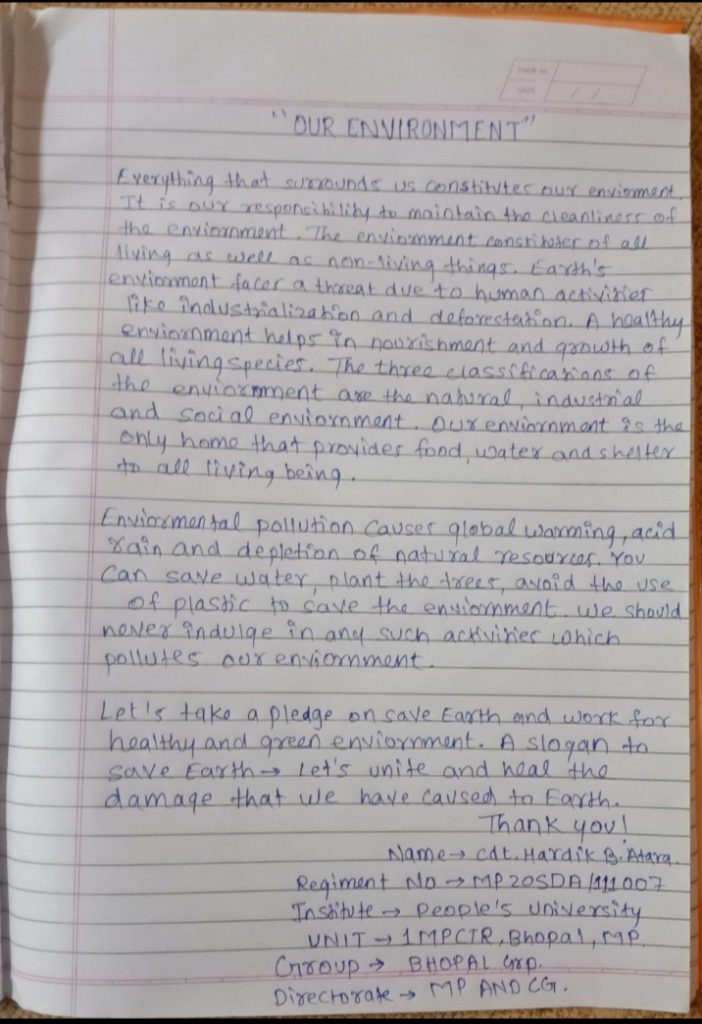 PAGE No.
DATE
"OUR ENVIRONMENT"
Everything that surrounds us constitutes our enviorment.
It is our responsibility to maintain the cleanliness of
the enviornment. The enviornment constitutes of all
living as well as non-living things. Earth's
enviornment faces a threat due to human activities
like industrialization and deforestation. A healthy
enviornment helps in nourishment and growth of
all living species. The three classifications of
the enviornment are the natural, industrial
and social enviornment. Our enviornment is the
only home that provides food, water and shelter
to all living being.
Enviormental pollution causes global warming, acid
rain and depletion of natural resources. You
can save water, plant the trees, avoid the use
of plastic to save the enviornment. We should
never indulge in any such activities which
pollutes our enviornment.
Let's take a pledge on save Earth and work for
healthy and green enviornment. A slogan to
save Earth → Let's unite and heal the
damage that we have caused to Earth.
Thank you!
Name → Cdt. Hardik B. Atara.
Regiment No → MP20SDA/111007
Institute → People's University
UNIT → 1MPCTR, Bhopal, MP.
Group → BHOPAL Grp.
Directorate → MP AND CG.